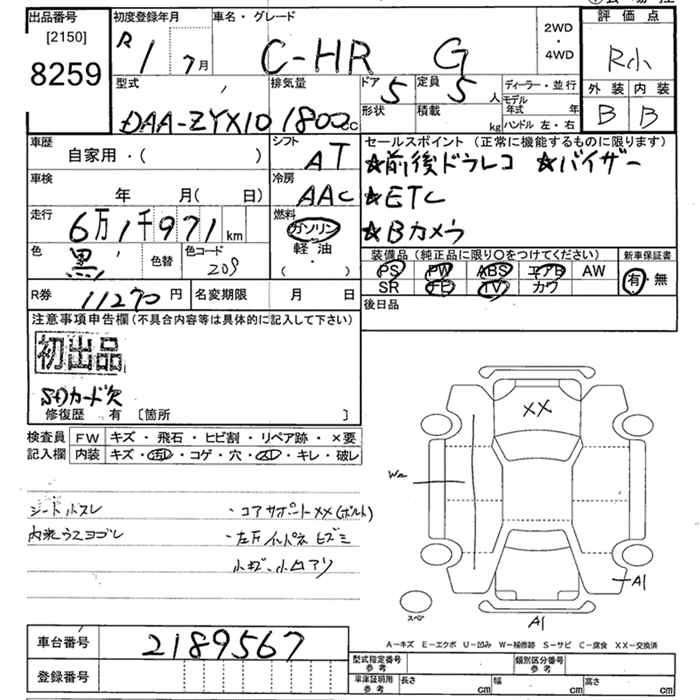 出品番号
[2150]
8259
初度登録年月
R 1 7月
車名・グレード
C-HR G
2WD
・
4WD
評価点
R小
外装 内装
B B
型式
DAA-ZYX10
排気量
1800cc
ドア
5
定員
5人
形状
積載
kg
ディーラー・並行
モデル年式 年
ハンドル 左・右
車歴
自家用・( )
シフト
AT
セールスポイント (正常に機能するものに限ります)
★前後ドラレコ ★バイザー
★ETC
★Bカメラ
車検
年 月( 日)
冷房
AAC
走行
6万1千971km
燃料
ガソリン
軽油
( ・ )
色
黒
色替
色コード
209
装備品 (純正品に限り〇をつけてください)
PS PW ABS エアB AW
SR TV カワ
新車保証書
有・無
R券
11270円
名変期限 月 日
後日品
注意事項申告欄(不具合内容等は具体的に記入して下さい)
初出品
SDカード欠
修復歴 有 〔箇所 〕
検査員記入欄
FW キズ・飛石・ヒビ割・リペア跡・×要
内装 キズ・汚レ・コゲ・穴・スレ・キレ・破レ
シートスレ
内装ウスヨゴレ
・コアサポートXX(ボルト)
・左F インパネ ヒズミ
小キズ、小凹アリ
XX
W2
A1
A1
スペア
A-キズ E-エクボ U-凹み W-補修跡 S-サビ C-腐食 XX-交換済
車台番号
2189567
登録番号
型式指定番号 参考
類別区分番号 参考
車庫証明用 参考
長さ cm
幅 cm
高さ cm